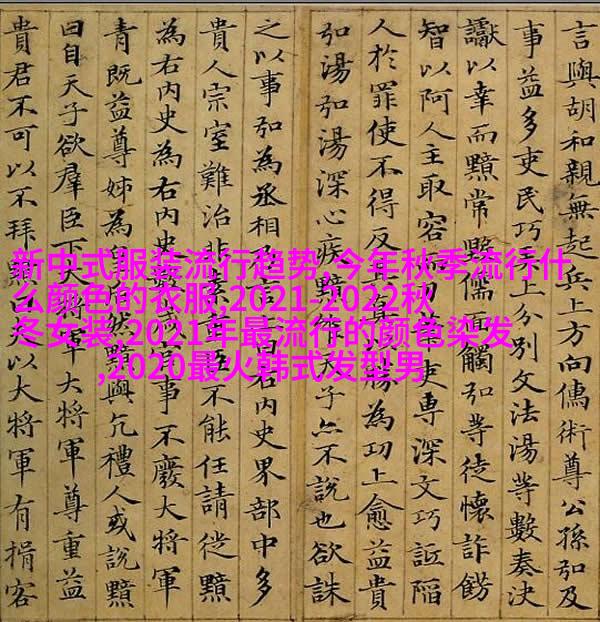 新中式服装流行趋势,今年秋季流行什
么颜色的衣服,2021-2022秋
冬女装,2021年最流行的颜色染发
,2020最火韩式发型男
言與胡和親無起兵上方向儒術尊公孫弘及
事益多吏民巧上分別文法湯等數奏決
讞以幸而黯常毀儒面觸弘等徒懷詐飾
智以阿人主取容而刀筆吏專深文巧詆陷
人於罪使不得反其真以勝為功上愈益貴
弘湯弘湯深心疾黯唯天子亦不說也欲誅
之以事弘為丞相乃言上曰右內史界部中多
貴人宗室難治非素重臣不能任請徙黯
為右內史為右內史數歲官事不廢大將軍
青既益尊姊為皇后然黯與亢禮人或說黯
曰自天子欲羣臣下大將軍大將軍尊重益
貴君不可以不拜黯曰夫以大將軍有揖客